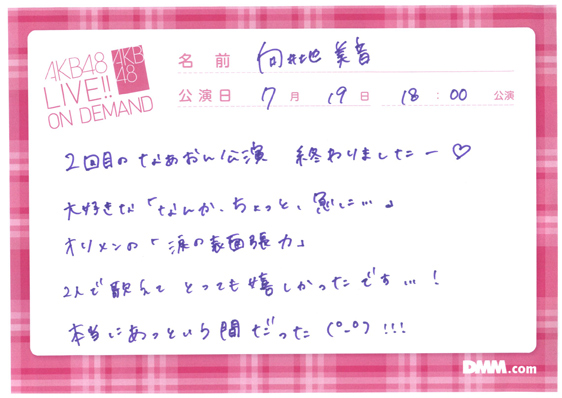 AKB48
LIVE!!
ON DEMAND
AKB
48
名前 向井地 美音
公演日 7月 19日 18:00 公演
2回目の なあおん公演 終わりましたー♡
大好きな「なんか、ちょっと、急に…」
オリメンの「涙の表面張力」
2人で歌えて とっても嬉しかったです…!
本当にあっという間だった (°_°) !!!
DMM.com